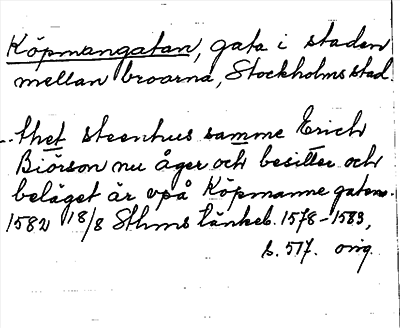 Köpmangatan, gata i staden
mellan broarna, Stockholms stad.
..thet steenhus samme Erich
Biörson nu åger och besitter och
beläget är vpå Köpmanne gaten.
1582 18/8 Sthms tänkeb. 1578-1583,
s. 517. orig.